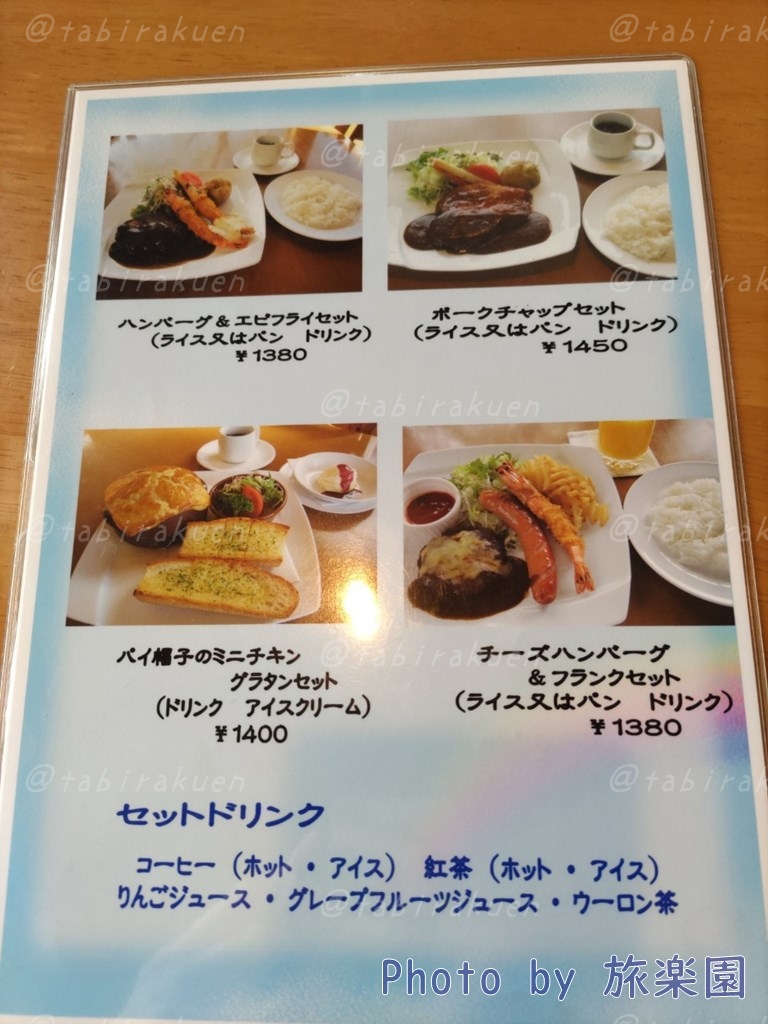 @tabirakuen
@tabirak
ハンバーグ&エビフライセット
(ライス又はパン ドリンク)
¥1380
ポークチャップセット
(ライス又はパン ドリンク)
¥1450
パイ帽子のミニチキン
グラタンセット
(ドリンク アイスクリーム)
¥1400
チーズハンバーグ
&フランクセット
(ライス又はパン ドリンク)
¥1380
セットドリンク
コーヒー(ホット・アイス) 紅茶(ホット・アイス)
りんごジュース・グレープフルーツジュース・ウーロン茶
Photo by 旅楽園